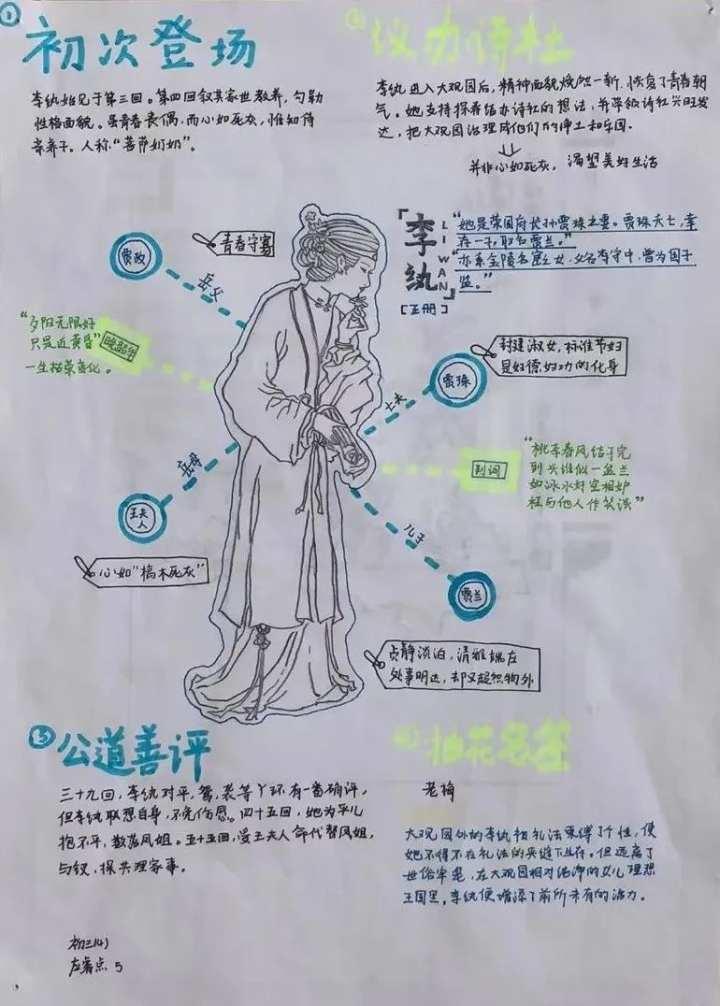 ①
初次登场
李纨始见于第三回。第四回叙其家世教养，勾勒
性格面貌。虽青春丧偶，而心如死灰，惟知侍
亲养子。人称“菩萨奶奶”。
②
议办诗社
李纨进入大观园后，精神面貌焕然一新，恢复了青春朝
气。她支持探春结办诗社的想法，并带领诗社兴旺发
达，把大观园治理成他们的净土和乐园。
并非心如死灰，渴望美好生活
「李纨」
LI WAN
[正册]
“她是荣国府长孙贾珠之妻。贾珠夭亡，幸
存一子，取名贾兰。”
“亦系金陵名宦之女，父名李守中，曾为国子
监。”
青春守寡
贾政
岳父
“夕阳无限好
只是近黄昏”
晚韶华
一生枯荣变化。
封建淑女，标准节妇
是妇德妇功的化身
贾珠
丈夫
岳母
王夫人
判词
“桃李春风结子完
到头谁似一盆兰
如冰水好空相妒
枉与他人作笑谈”
儿子
贾兰
心如“槁木死灰”
贞静淡泊，清雅端庄
处事明达，却又超然物外
③
公道善评
三十九回，李纨对平，鸳，袭等丫环有一番确评，
但李纨联想自身，不免伤感。四十五回，她为平儿
抱不平，数落凤姐。五十五回，受王夫人命代替凤姐，
与钗，探共理家事。
抽花名签
老梅
大观园外的李纨被礼法束缚了个性，使
她不得不在礼法的夹缝下生存。但远离了
世俗牢笼，在大观园相对洁净的女儿理想
王国里，李纨便增添了前所未有的活力。
初三(4)
5